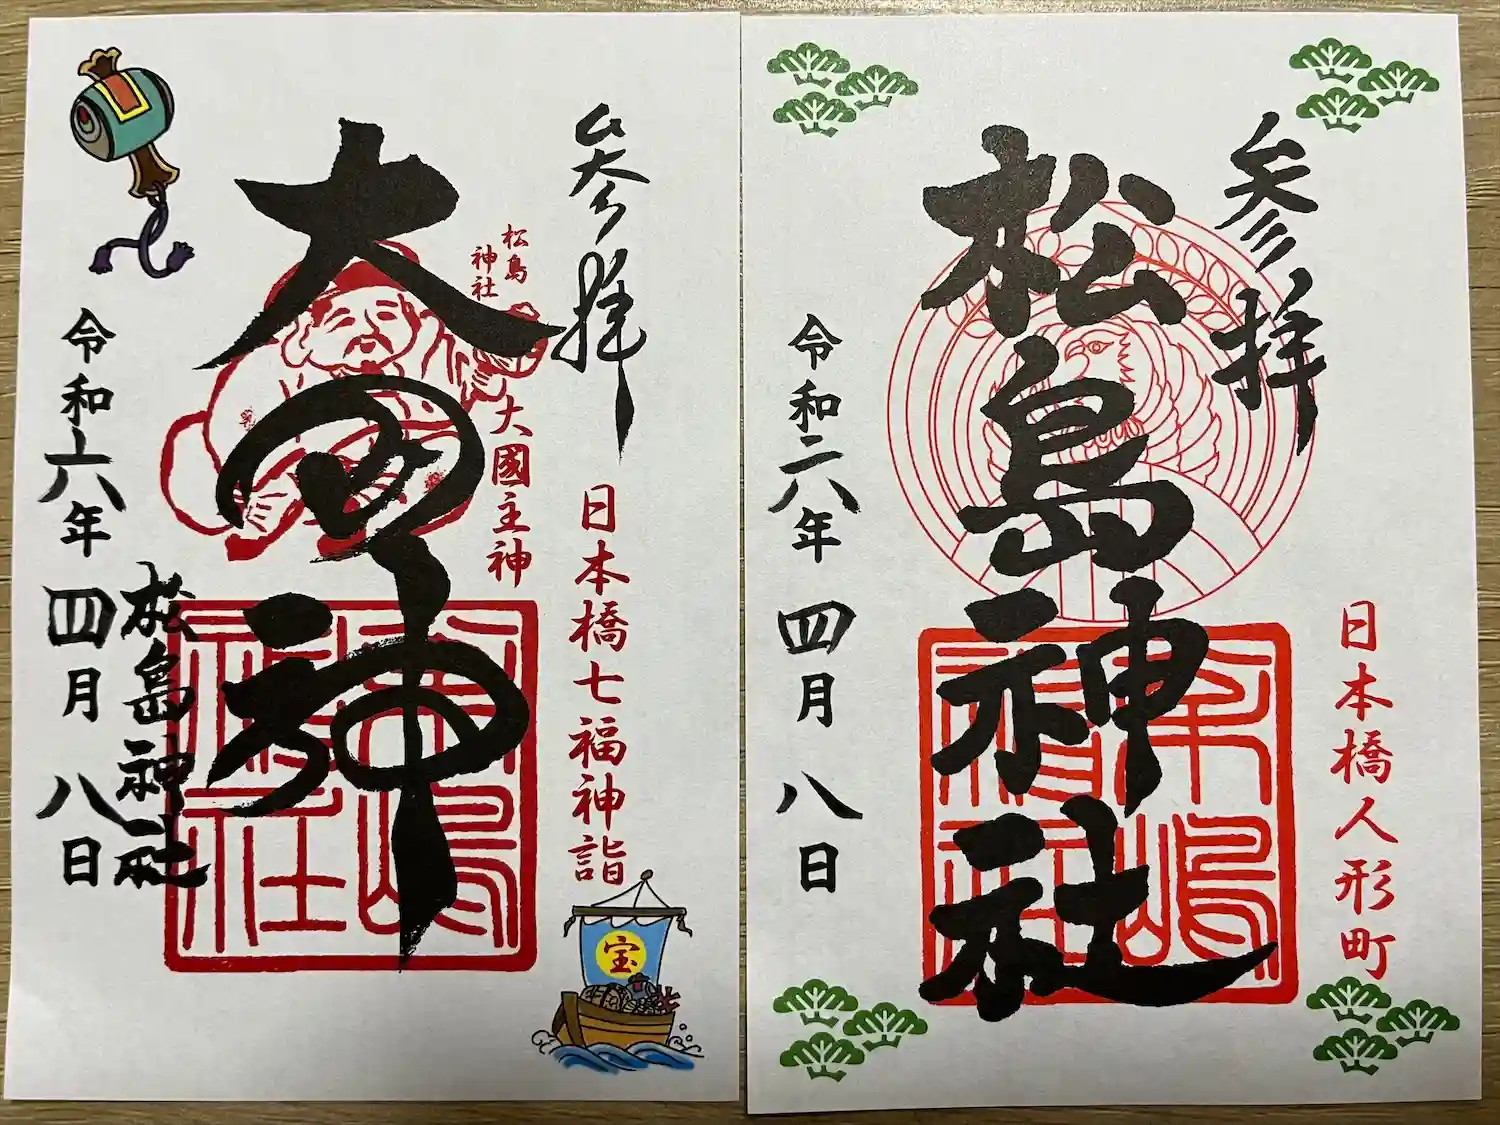 参拝
日本橋七福神詣
宝
松島
神社
大國主神
大国神
松嶋
神社
松島神社
令和六年四月八日
参拝
日本橋人形町
松島神社
松嶋
神社
令和六年四月八日